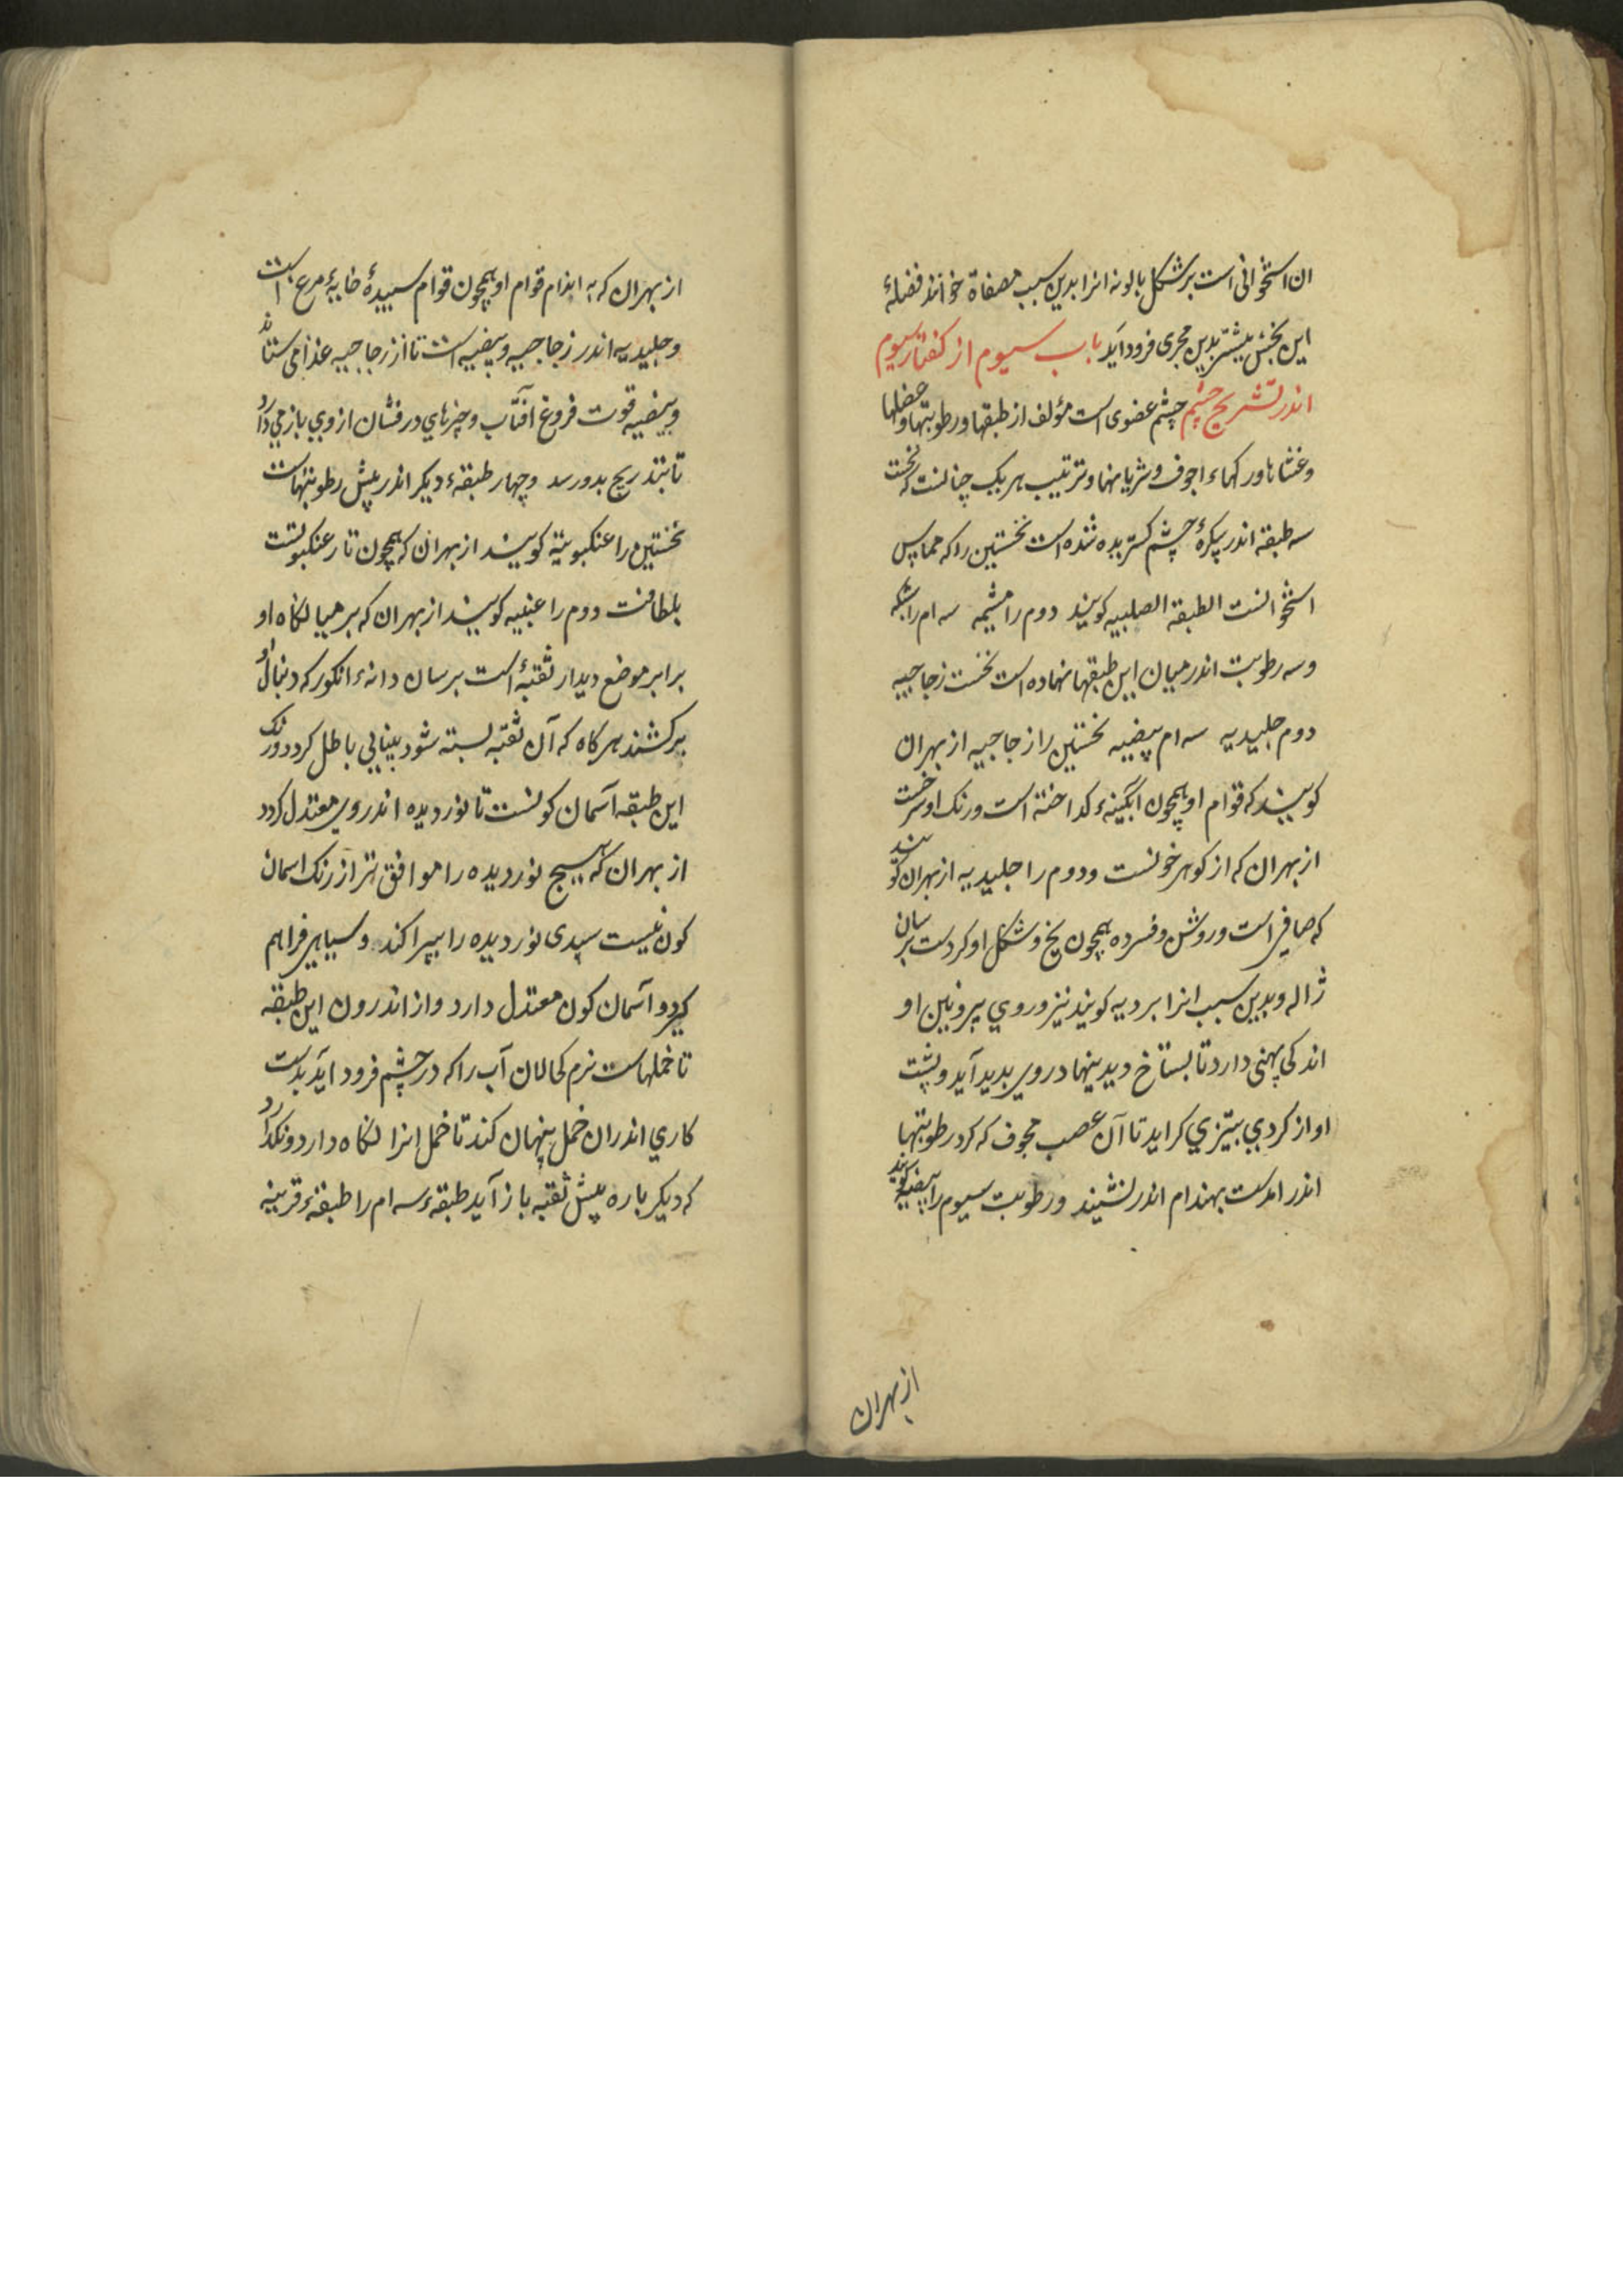 ان استخوانی است بر شکل بالونه انرا بدین سبب مصفاة خوانند فضلهٔ
این بخش بیشتر بدین مجری فرود اید باب سیوم از کفتار سیوم
اندر تشریح چشم چشم عضوی است مؤلف از طبقها و رطوبتها و عضلها
و غشاها و رکهاء اجوف و شریانها و ترتیب هر یک چنانست که نخست
سه طبقه اندر پکرهٔ چشم کسترده شده است نخستین را که مماس
استخوانست الطبقه الصلبیه کویند دوم را مشیمه سه ام را شبکه
و سه رطوبت اندر میان این طبقها نهاده است نخست زجاجیه
دوم جلیدیه سه ام بیضیه نخستین را زجاجیه از بهر ان
کویند که قوام او همچون ابکینهٔ کداخته است و رنک او سرخست
از بهر ان که از کوهر خونست و دوم را جلیدیه از بهر ان کویند
که صافی است و روشن و فسرده همچون یخ و شکل او کردست بر سان
ژاله و بدین سبب انرا بردیه کویند نیز و روی بیرونین او
اندکی پهنی دارد تا بستاخ دیدنیها در وی بدید آید و پشت
او از کردی بتیزی کراید تا آن عصب مجوف که کرد رطوبتها
اندر امدست بهندام اندر نشیند و رطوبت سیوم را بیضیه کویند
از بهر ان
از بهر ان که به اندام قوام او همچون قوام سبیدهٔ خایهٔ مرغ است
و جلیدیه اندر زجاجیه و بیضیه است تا از زجاجیه غذا می ستاند
و بیضیه قوت فروغ آفتاب و چیزهای درفشان از وی باز می دارد
تا بتدریج بدو رسد و چهار طبقهٔ دیکر اندر پیش رطوبتهاست
نخستین را عنکبوتیة کویند از بهر ان که همچون تار عنکبوتست
بلطافت دوم را عنبیه کویند از بهر ان که بر میانکاه او
برابر موضع دیدار ثقبهٔ است بر سان دانهٔ انکور که دنبال او
برکشند هر کاه که آن ثقبه بسته شود بینایی باطل کردد و رنک
این طبقه آسمان کونست تا نور دیده اندر وی معتدل کردد
از بهر ان که هیچ نور دیده را موافق تر از رنک اسمان
کون نیست سپیدی نور دیده را بپراکند و سیاهی فراهم
کیرد و آسمان کون معتدل دارد و از اندرون این طبقه
تا خملهاست نرم کحالان آب را که در چشم فرود اید بدست
کاری اندران خمل پنهان کند تا خمل انرا نکاه دارد و نکذارد
که دیکر باره پیش ثقبه باز آید طبقهٔ سه ام را طبقهٔ قرینه